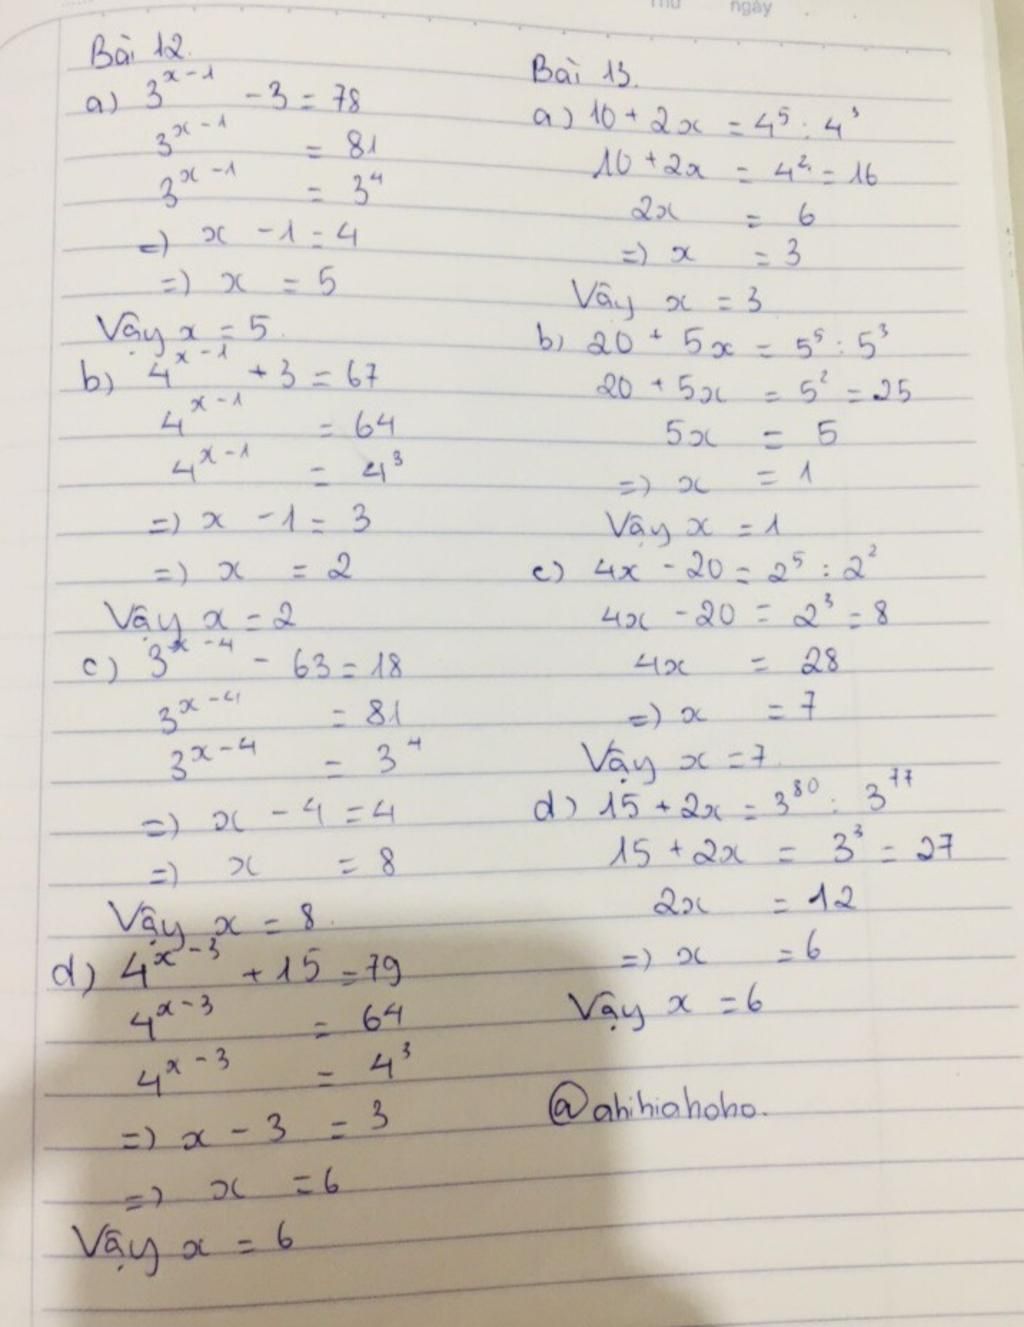 Thứ ngày
Bài 12.
a) 3^{x-1} - 3 = 78
3^{x-1} = 81
3^{x-1} = 3^4
=) x - 1 = 4
=) x = 5
Vậy x = 5.
b) 4^{x-1} + 3 = 67
4^{x-1} = 64
4^{x-1} = 4^3
=) x - 1 = 3
=) x = 2
Vậy x = 2
c) 3^{x-4} - 63 = 18
3^{x-4} = 81
3^{x-4} = 3^4
=) x - 4 = 4
=) x = 8
Vậy x = 8.
d) 4^{x-3} + 15 = 79
4^{x-3} = 64
4^{x-3} = 4^3
=) x - 3 = 3
=) x = 6
Vậy x = 6
Bài 13.
a) 10 + 2x = 4^5 : 4^3
10 + 2x = 4^2 = 16
2x = 6
=) x = 3
Vậy x = 3
b) 20 + 5x = 5^5 : 5^3
20 + 5x = 5^2 = 25
5x = 5
=) x = 1
Vậy x = 1
c) 4x - 20 = 2^5 : 2^2
4x - 20 = 2^3 = 8
4x = 28
=) x = 7
Vậy x = 7
d) 15 + 2x = 3^{80} : 3^{77}
15 + 2x = 3^3 = 27
2x = 12
=) x = 6
Vậy x = 6
@ahihiahoho.